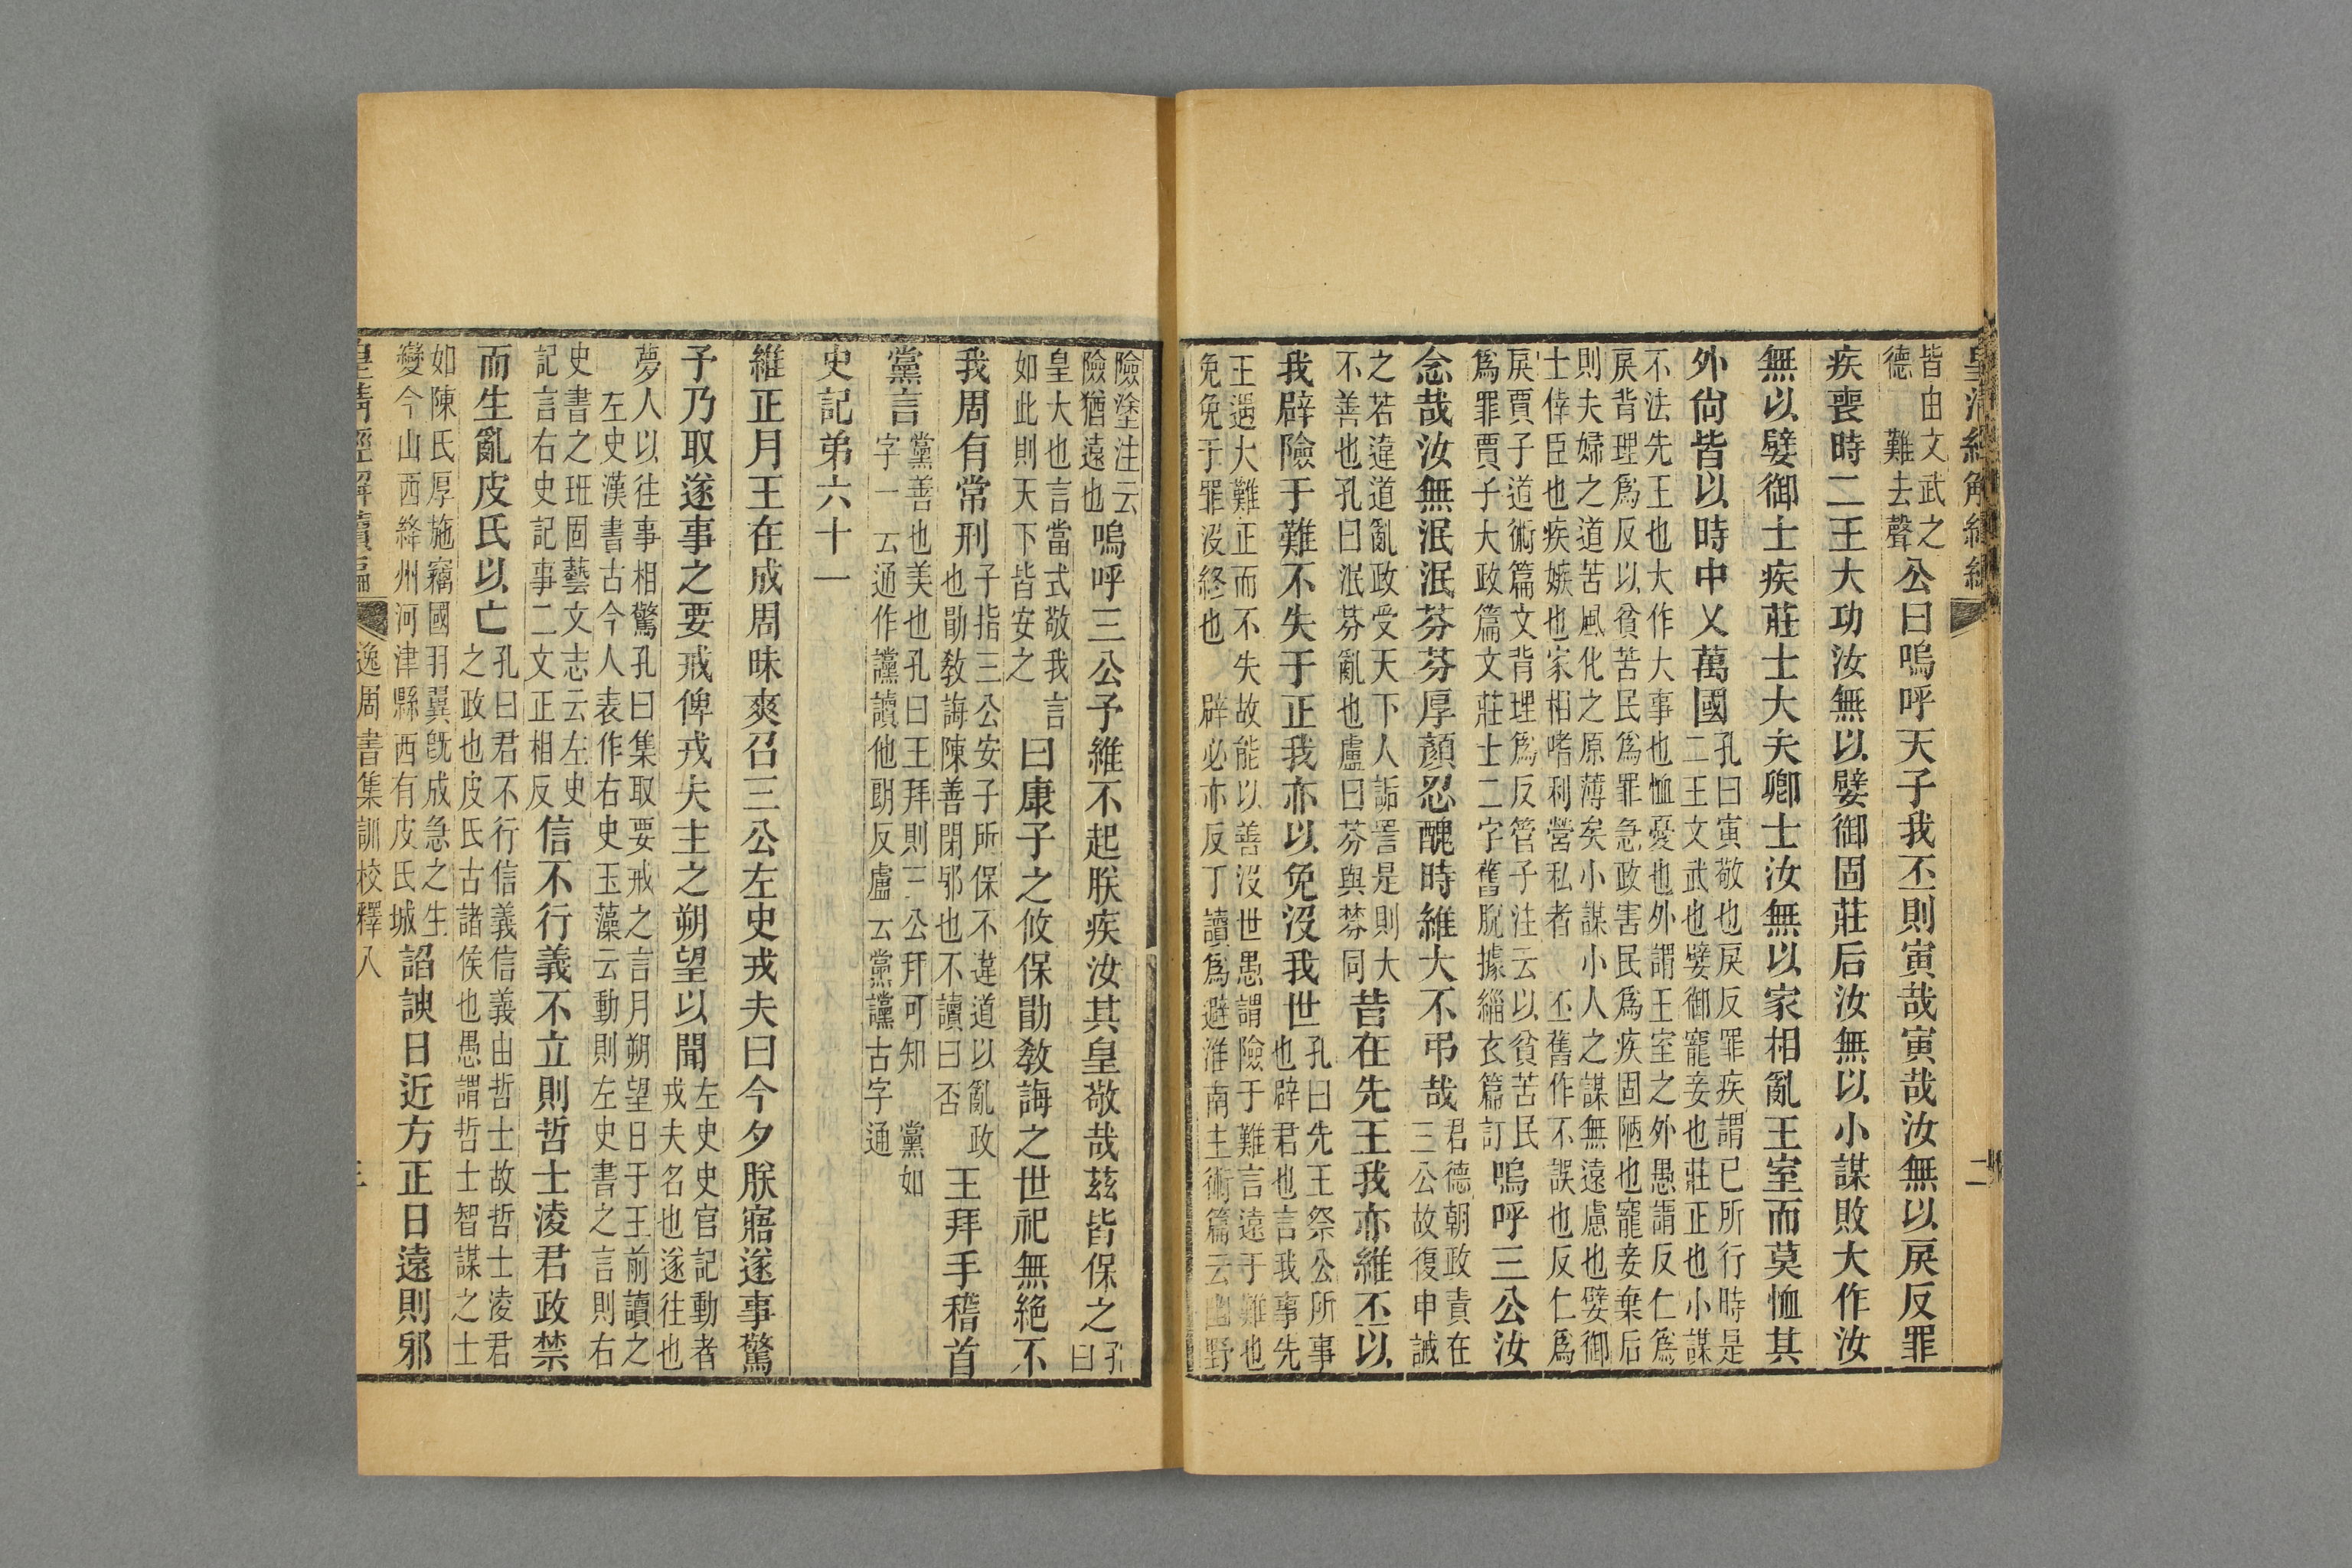 皇清經解續編 二
皆由文武之德 難去聲 公曰嗚呼天子我丕則寅哉寅哉汝無以戾反罪
疾喪時二王大功汝無以嬖御固莊后汝無以小謀敗大作汝
無以嬖御士疾莊士大夫卿士汝無以家相亂王室而莫恤其
外尙皆以時中乂萬國孔曰寅敬也戾反罪疾謂已所行時是二王文武也嬖御寵妾也莊正也小謀
不法先王也大作大事也恤憂也外謂王室之外愚謂反仁爲戾背理爲反以貧苦民爲罪急政害民爲疾固陋也寵妾棄后
則夫婦之道苦風化之原薄矣小謀小人之謀無遠慮也嬖御士倖臣也疾嫉也家相嗜利營私者 丕舊作不誤也反仁爲
戾賈子道術篇文背理爲反管子注云以貧苦民爲罪賈子大政篇文莊士二字舊脫據緇衣篇訂 嗚呼三公汝
念哉汝無泯泯芬芬厚顏忍醜時維大不弔哉君德朝政責在三公故復申誡
之若違道亂政受天下人詬詈是則大不善也孔曰泯芬亂也盧曰芬與棼同 昔在先王我亦維丕以
我辟險于難不失于正我亦以免沒我世孔曰先王祭公所事也辟君也言我事先
王遇大難正而不失故能以善沒世愚謂險于難言遠于難也免免于罪沒終也 辟必亦反丁讀爲避淮南主術篇云幽野
險塗注云險猶遠也 嗚呼三公予維不起朕疾汝其皇敬哉茲皆保之孔曰
皇大也言當式敬我言如此則天下皆安之 曰康子之攸保勖敎誨之世祀無絶不
我周有常刑子指三公安子所保不違道以亂政也勖敎誨陳善閉邪也不讀曰否 王拜手稽首
黨言黨善也美也孔曰王拜則三公拜可知 黨如字一云通作讜讀他朗反盧云黨讜古字通
史記弟六十一
維正月王在成周昧爽召三公左史戎夫曰今夕朕寤遂事驚
予乃取遂事之要戒俾戎夫主之朔望以聞左史史官記動者戎夫名也遂往也
夢人以往事相驚孔曰集取要戒之言月朔望日于王前讀之 左史漢書古今人表作右史玉藻云動則左史書之言則右
史書之班固藝文志云左史記言右史記事二文正相反 信不行義不立則哲士淩君政禁
而生亂皮氏以亡孔曰君不行信義信義由哲士故哲士淩君之政也皮氏古諸侯也愚謂哲士智謀之士
如陳氏厚施竊國羽翼旣成急之生變今山西絳州河津縣西有皮氏城 諂諛日近方正日遠則邪
皇清經解續編 逸周書集訓校釋八 三